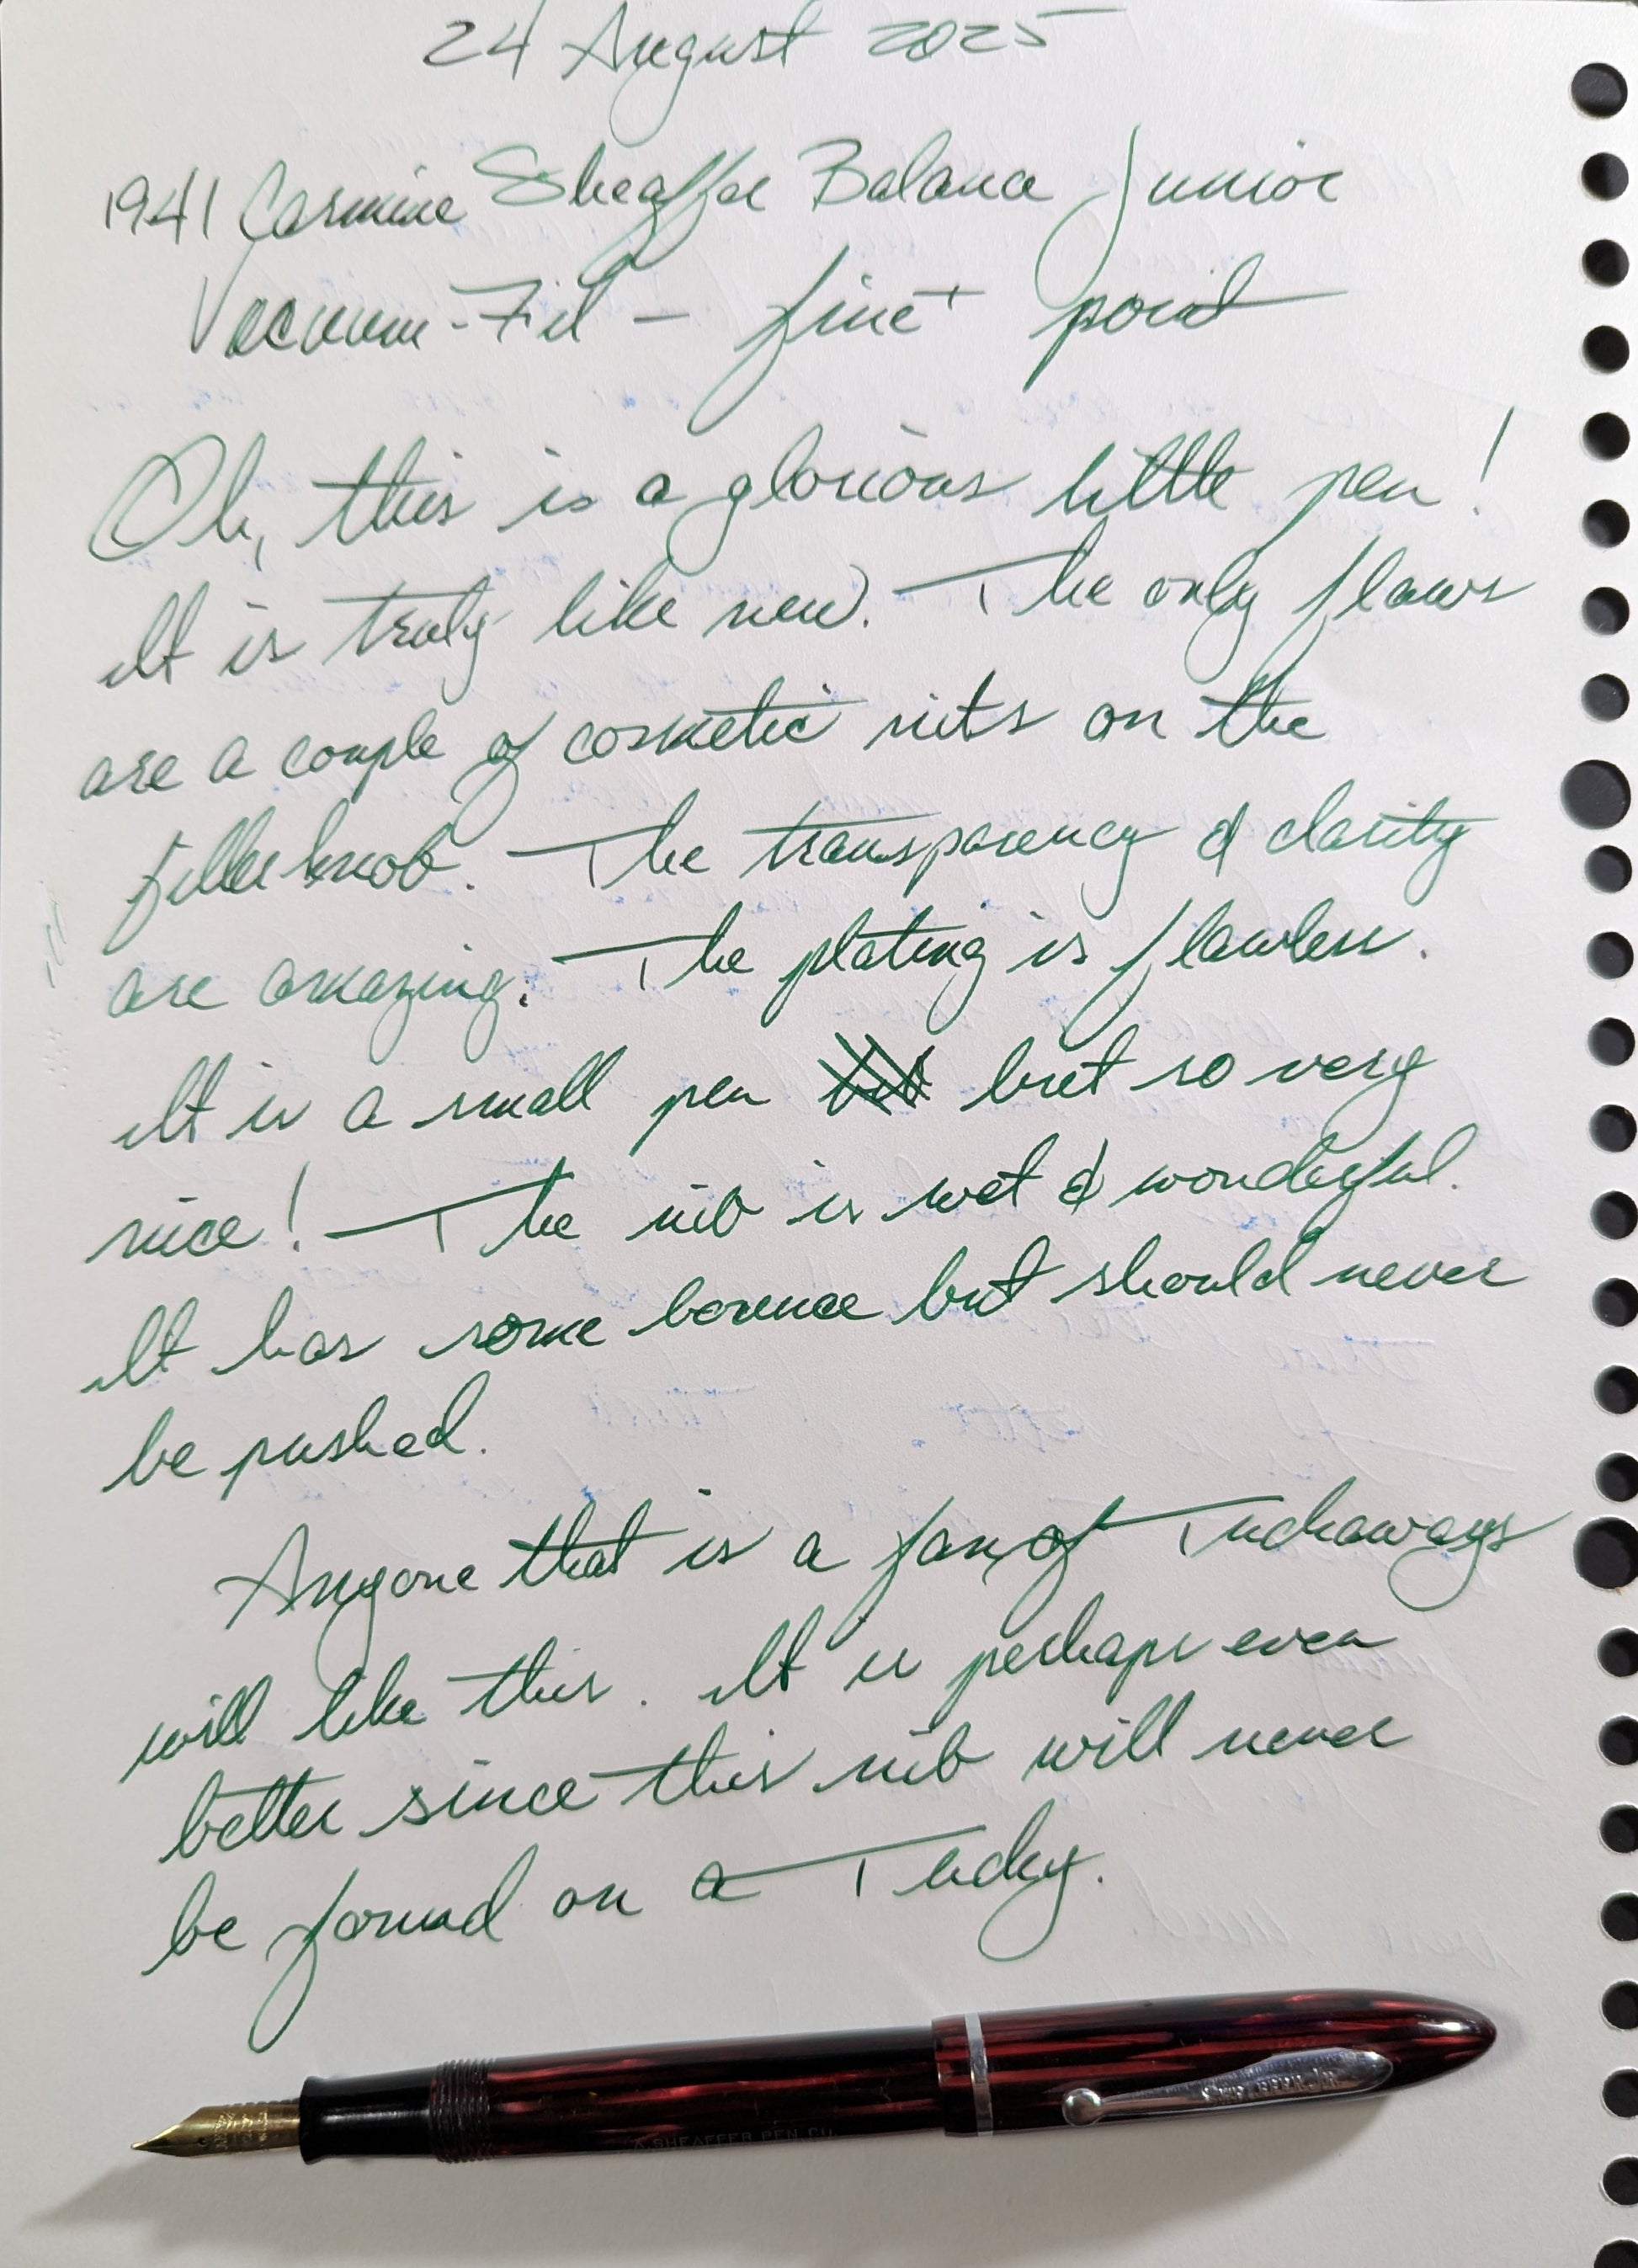 24 August 2025
1941 Carmine Sheaffer Balance Junior
Vacuum-Fil — fine point
Oh, this is a glorious little pen!
It is truly like new. The only flaws
are a couple of cosmetic nits on the
filler knob. The transparency & clarity
are amazing. The plating is flawless.
It is a small pen but so very
nice! The nib is wet & wonderful.
It has some bounce but should never
be pushed.
Anyone that is a fan of Tuckaways
will like this. It is perhaps even
better since this nib will never
be found on a Tucky.
SHEAFFER PEN CO.